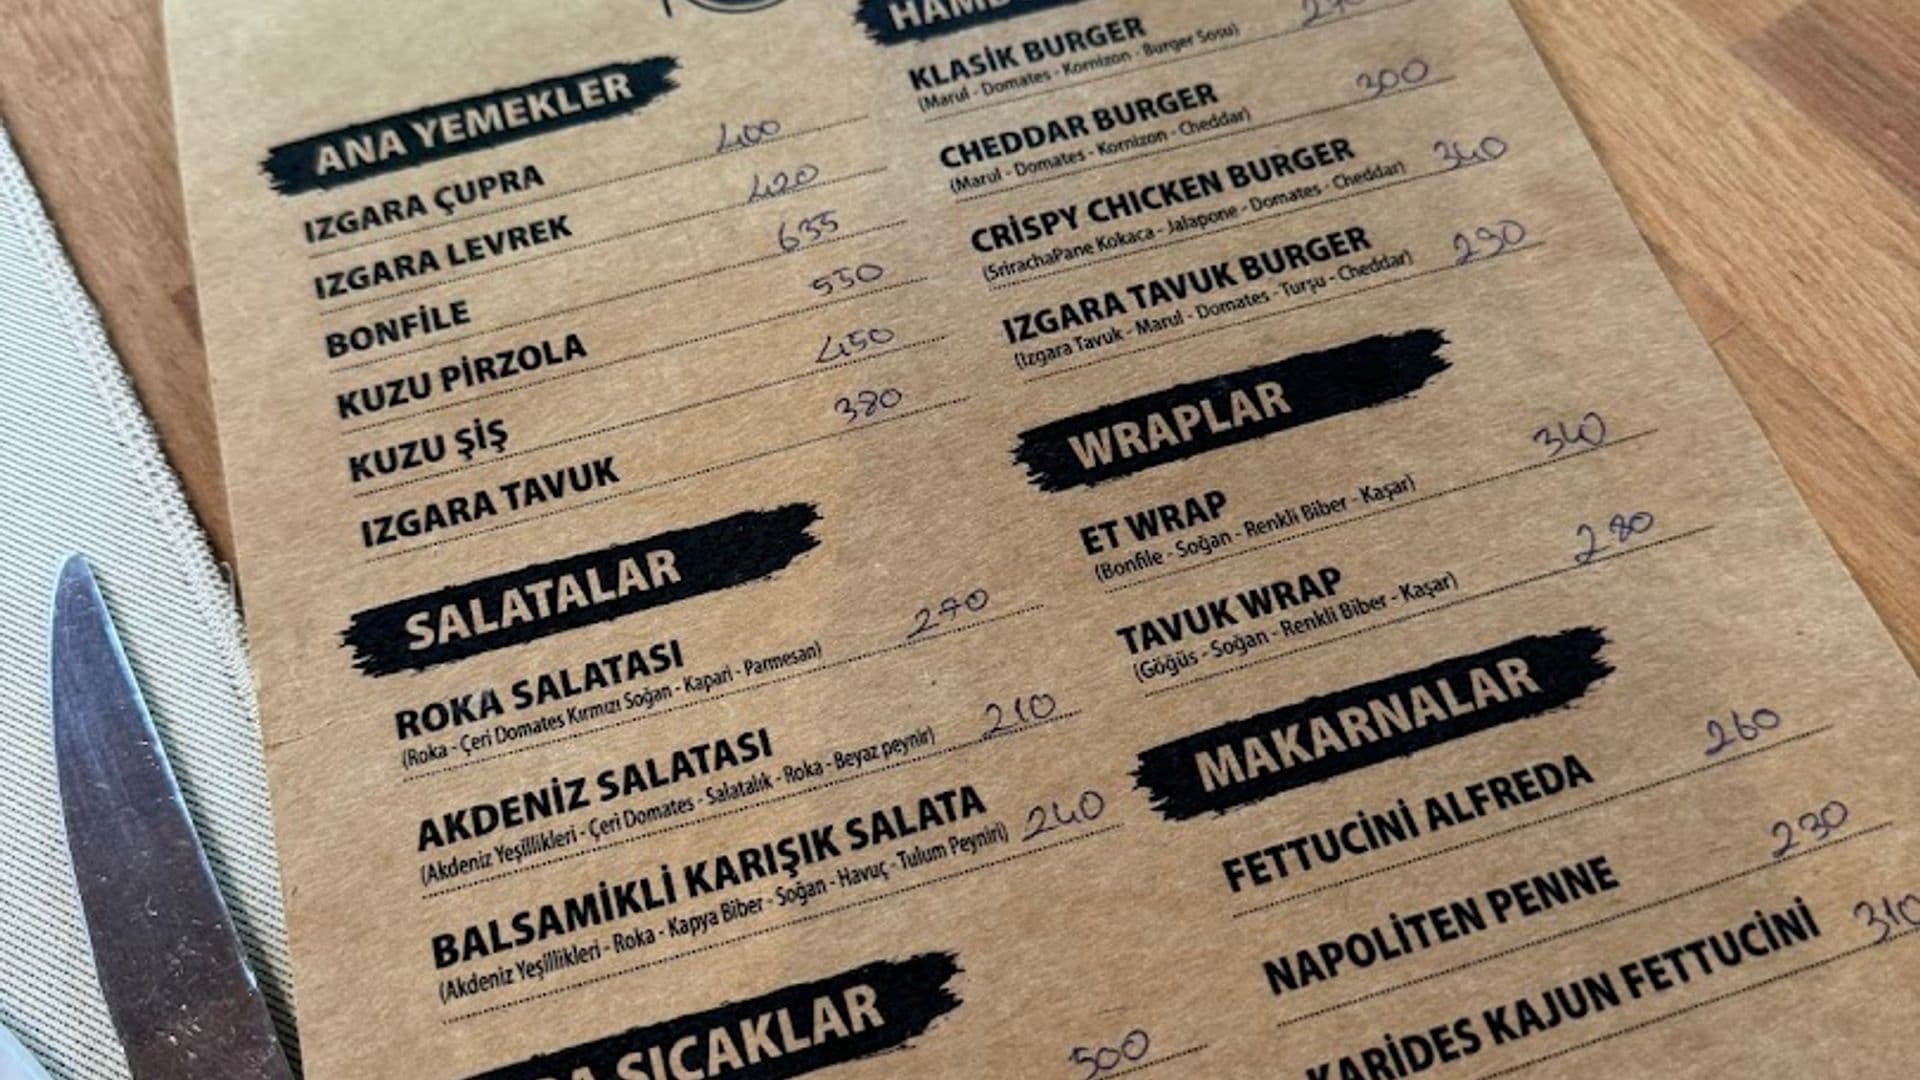 ANA YEMEKLER
IZGARA ÇUPRA 400
IZGARA LEVREK 420
BONFİLE 635
KUZU PİRZOLA 550
KUZU ŞİŞ 450
IZGARA TAVUK 380
SALATALAR
ROKA SALATASI 270
(Roka - Çeri Domates Kırmızı Soğan - Kapari - Parmesan)
AKDENİZ SALATASI 210
(Akdeniz Yeşillikleri - Çeri Domates - Salatalık - Roka - Beyaz peynir)
BALSAMİKLİ KARIŞIK SALATA 240
(Akdeniz Yeşillikleri - Roka - Kapya Biber - Soğan - Havuç - Tulum Peyniri)
SICAKLAR
500
KLASİK BURGER
(Marul - Domates - Kornizon - Burger Sosu)
CHEDDAR BURGER 300
(Marul - Domates - Kornizon - Cheddar)
CRİSPY CHICKEN BURGER 340
(SrirachaPane Kokaca - Jalapone - Domates - Cheddar)
IZGARA TAVUK BURGER 290
(Izgara Tavuk - Marul - Domates - Turşu - Cheddar)
WRAPLAR
ET WRAP 340
(Bonfile - Soğan - Renkli Biber - Kaşar)
TAVUK WRAP 280
(Göğüs - Soğan - Renkli Biber - Kaşar)
MAKARNALAR
FETTUCİNİ ALFREDA 260
NAPOLİTEN PENNE 230
KARİDES KAJUN FETTUCİNİ 310